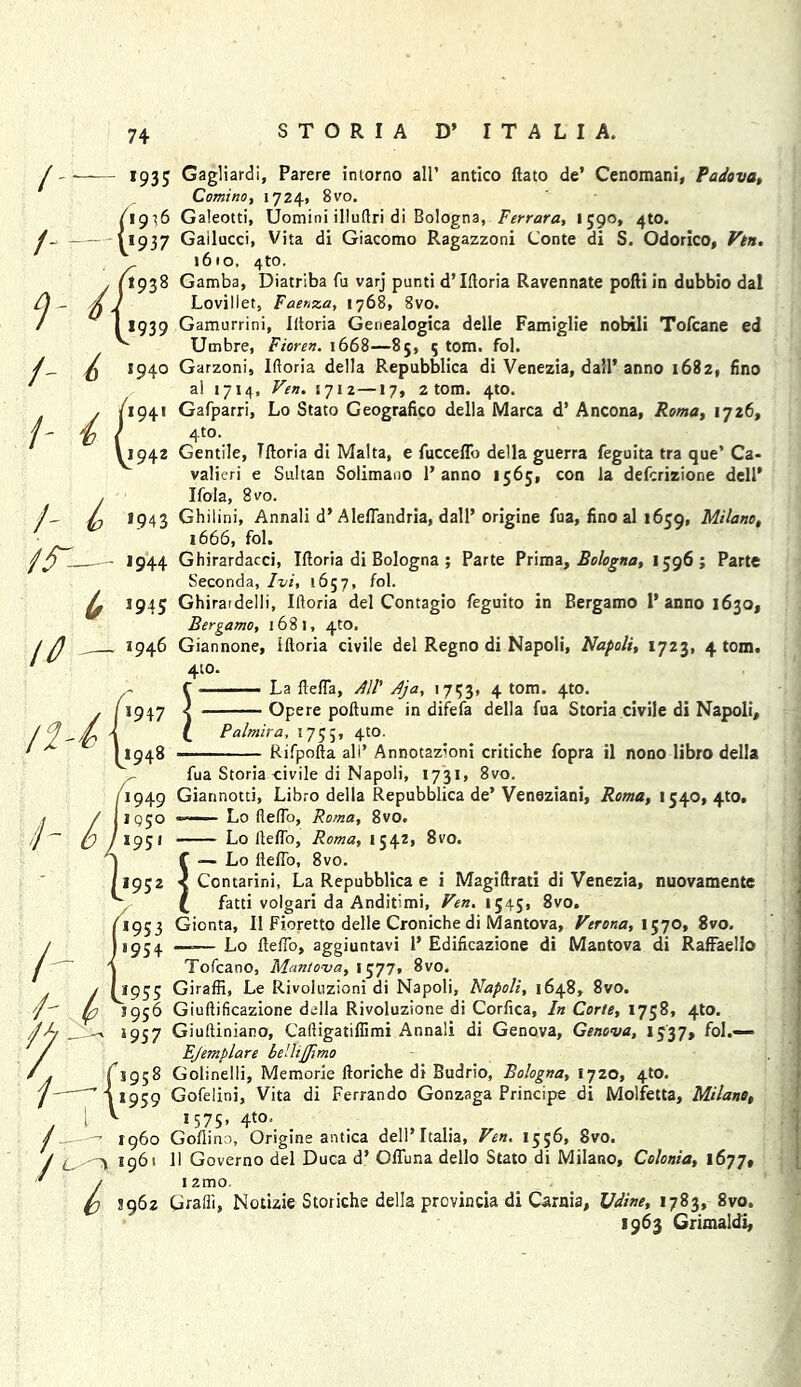 74 STORIA D' ITALIA.
/ - — 1935 Gagliardi, Parere intorno all' antico ſtato de' Cenomani, Padova,
Comino, 1724, 8vo.
1936 Galeotti, Uomini illuſtri di Bologna, Ferrara, 1590, 4to.
/ - — 1937 Gallucci, Vita di Giacomo Ragazzoni Conte di S. Odorico, Ven.
1610, 4to.
1938 Gamba, Diatriba ſu varj punti d'Iſtoria Ravennate poſti in dubbio dal
9 - 6 Lovillet, Faenza, 1768, 8vo.
1939 Gamurrini, Iſtoria Genealogica delle Famiglie nobili Toſcane ed
Umbre, Fioren. 1668—85, 5 tom. fol.
/ - 6 1940 Garzoni, Iſtoria della Repubblica di Venezia, dall' anno 1682, fino
al 1714, Ven. 1712—17, 2 tom. 4to.
1941 Gaſparri, Lo Stato Geografico della Marca d' Ancona, Roma, 1726,
/ - 6 4to.
1942 Gentile, Iſtoria di Malta, e ſucceſſo della guerra ſeguita tra que' Ca-
valieri e Sultan Solimano l' anno 1565, con la deſcrizione dell'
Iſola, 8vo.
/ - 6 1943 Ghilini, Annali d' Aleſſandria, dall' origine ſua, fino al 1659, Milano,
1666, fol.
15 — 1944 Ghirardacci, Iſtoria di Bologna; Parte Prima, Bologna, 1596; Parte
Seconda, Ivi, 1657, fol.
6 1945 Ghirardelli, Iſtoria del Contagio ſeguito in Bergamo l' anno 1630,
Bergamo, 1681, 4to.
10 — 1946 Giannone, Iſtoria civile del Regno di Napoli, Napoli, 1723, 4 tom.
4to.
——— La ſteſſa, All' Aja, 1753, 4 tom. 4to.
12 - 6 1947 ——— Opere poſtume in difeſa della ſua Storia civile di Napoli,
Palmira, 1755, 4to.
1948 ——— Riſpoſta all' Annotazioni critiche ſopra il nono libro della
ſua Storia civile di Napoli, 1731, 8vo.
1949 Giannotti, Libro della Repubblica de' Veneziani, Roma, 1540, 4to.
1950 —— Lo ſteſſo, Roma, 8vo.
/ - 6 1951 —— Lo ſteſſo, Roma, 1542, 8vo.
— Lo ſteſſo, 8vo.
1952 Contarini, La Repubblica e i Magiſtrati di Venezia, nuovamente
fatti volgari da Anditimi, Ven. 1545, 8vo.
1953 Gionta, Il Fioretto delle Croniche di Mantova, Verona, 1570, 8vo.
/ - 1954 —— Lo ſteſſo, aggiuntavi l' Edificazione di Mantova di Raffaello
Toſcano, Mantova, 1577, 8vo.
1955 Giraffi, Le Rivoluzioni di Napoli, Napoli, 1648, 8vo.
/ - 6 1956 Giuſtificazione della Rivoluzione di Corſica, In Corte, 1758, 4to.
1957 Giuſtiniano, Caſtigatiſſimi Annali di Genova, Genova, 1537, fol.—
Eſemplare belliſſimo
1958 Golinelli, Memorie ſtoriche di Budrio, Bologna, 1720, 4to.
/ — 1959 Goſelini, Vita di Ferrando Gonzaga Principe di Molfetta, Milano,
1575, 4to.
/ — 1960 Goſlino, Origine antica dell' Italia, Ven. 1556, 8vo.
/ 1961 Il Governo del Duca d' Oſſuna dello Stato di Milano, Colonia, 1677,
12mo.
6 1962 Graſſi, Notizie Storiche della provincia di Carnia, Udine, 1783, 8vo.
1963 Grimaldi,